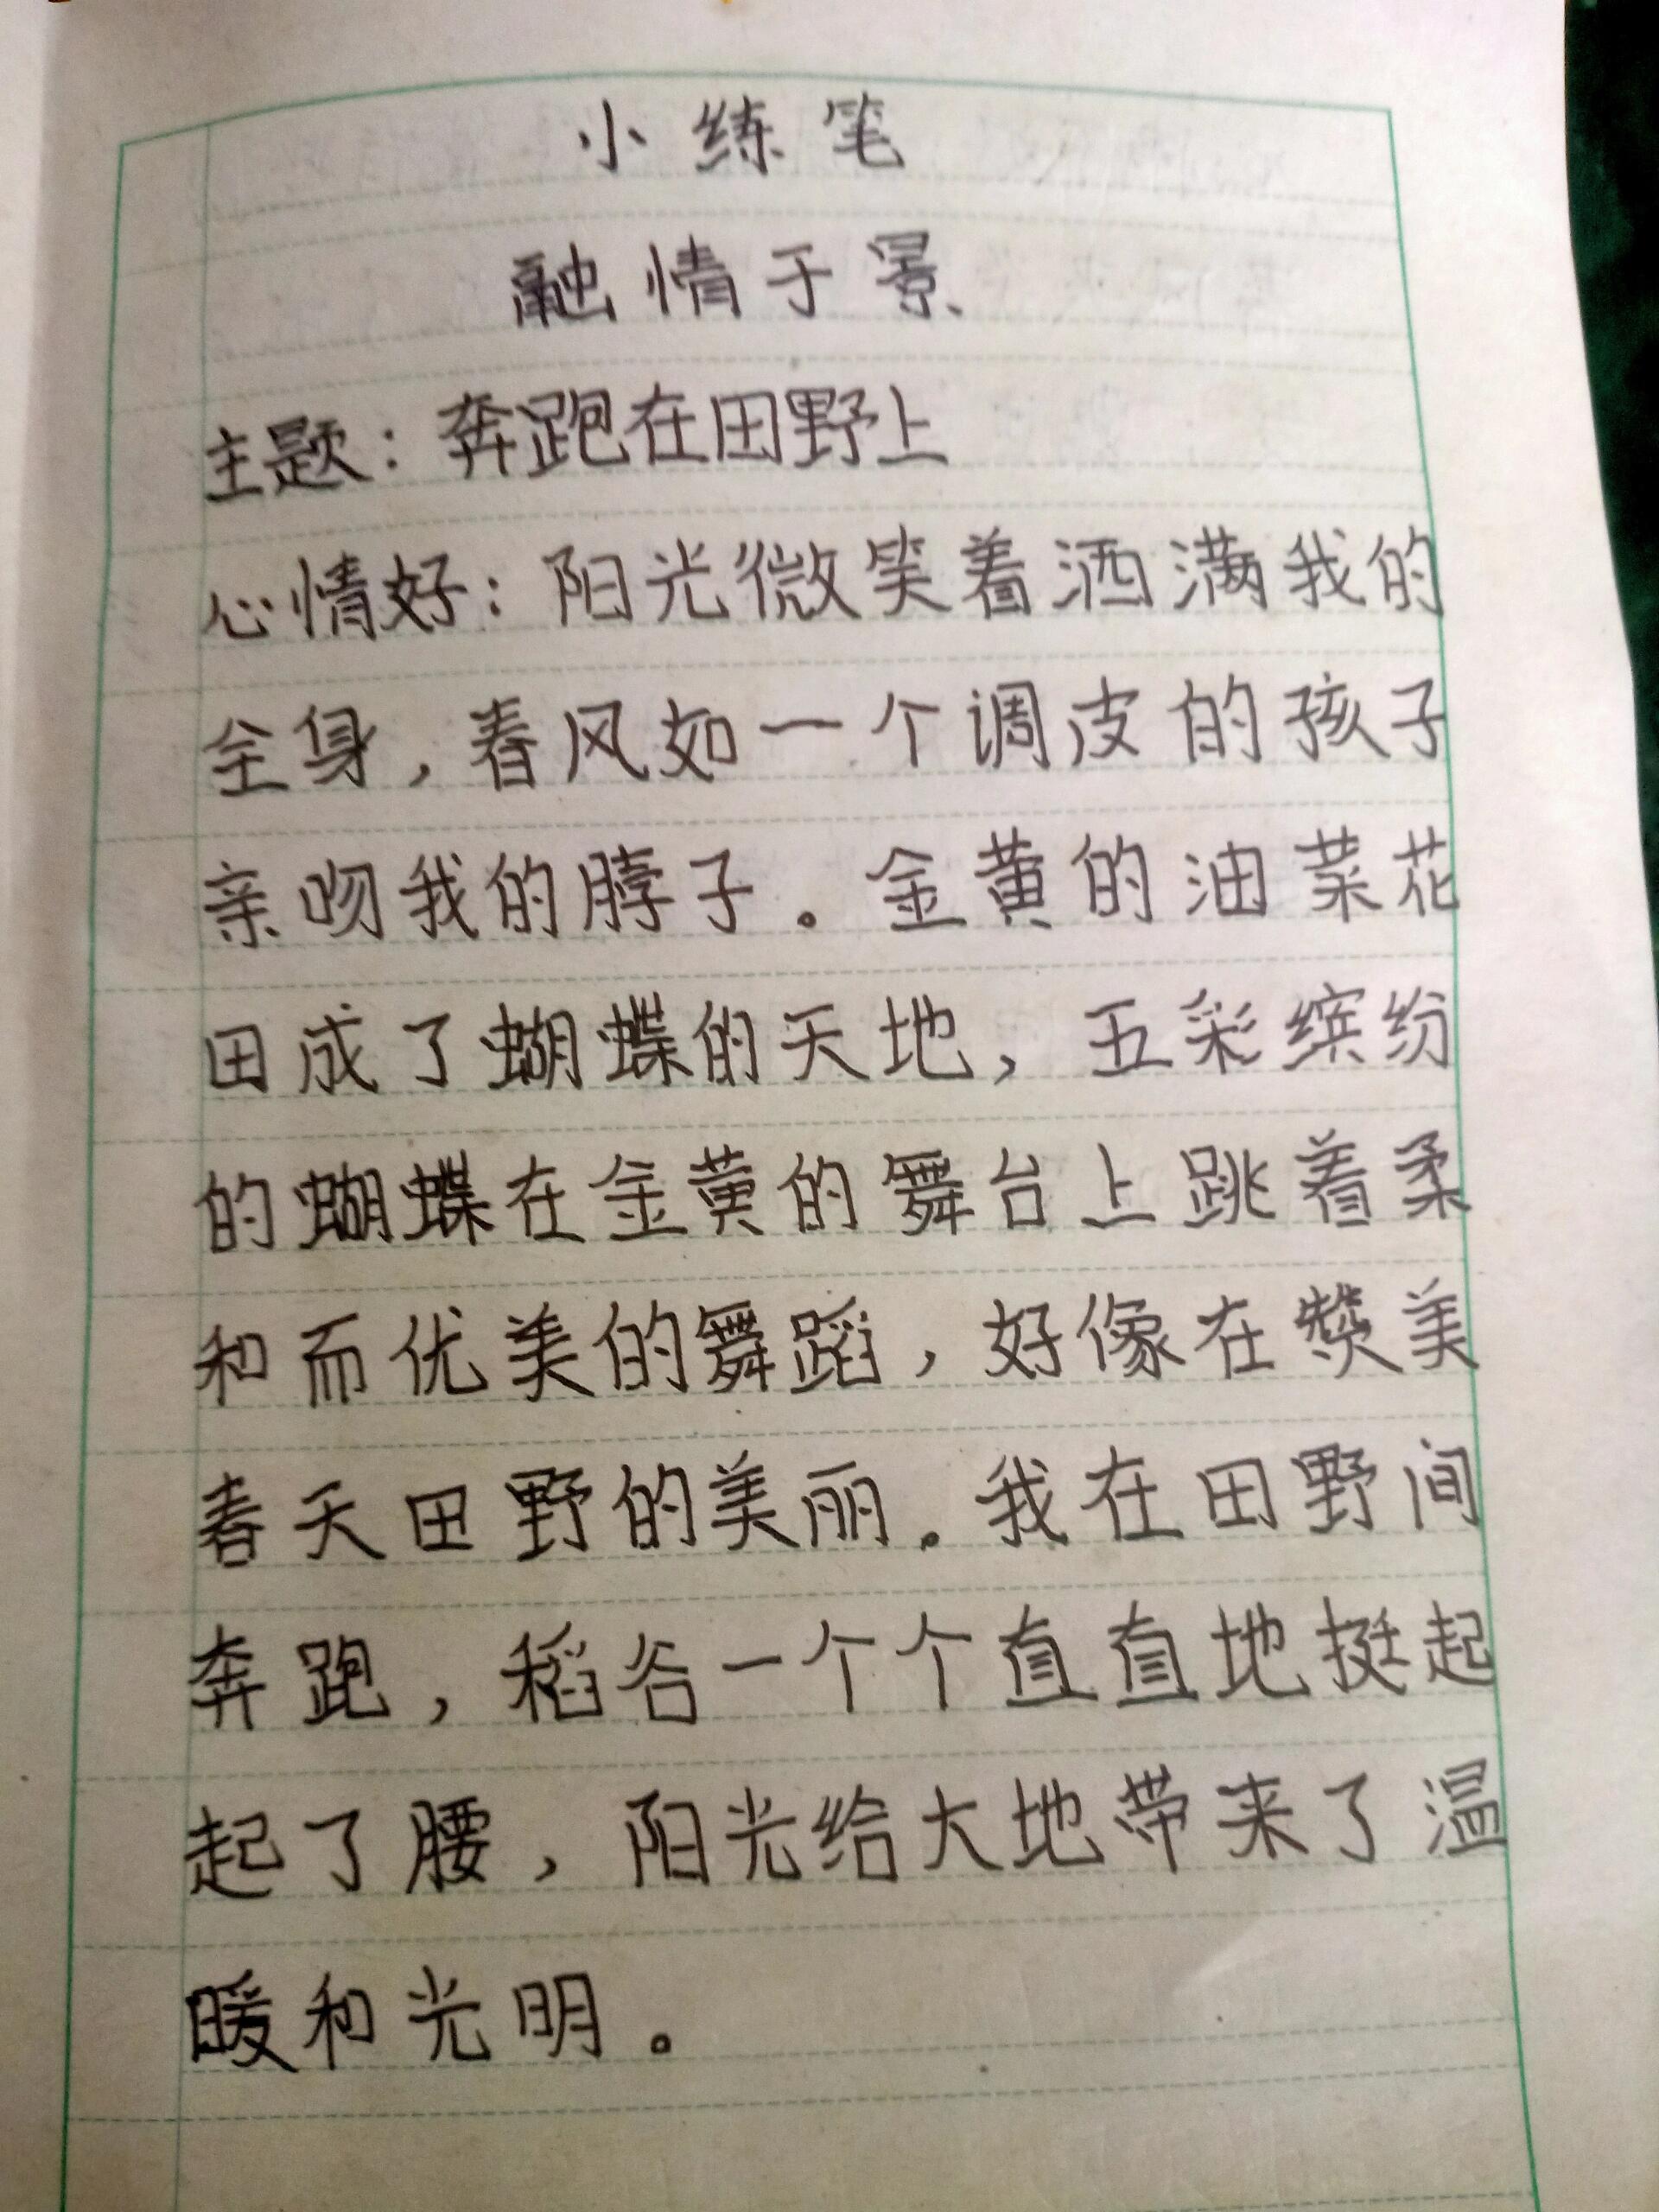 小练笔
融情于景
主题：奔跑在田野上
心情好：阳光微笑着洒满我的
全身，春风如一个调皮的孩子
亲吻我的脖子。金黄的油菜花
田成了蝴蝶的天地，五彩缤纷
的蝴蝶在金黄的舞台上跳着柔
和而优美的舞蹈，好像在赞美
春天田野的美丽。我在田野间
奔跑，稻谷一个个直直地挺起
起了腰，阳光给大地带来了温
暖和光明。